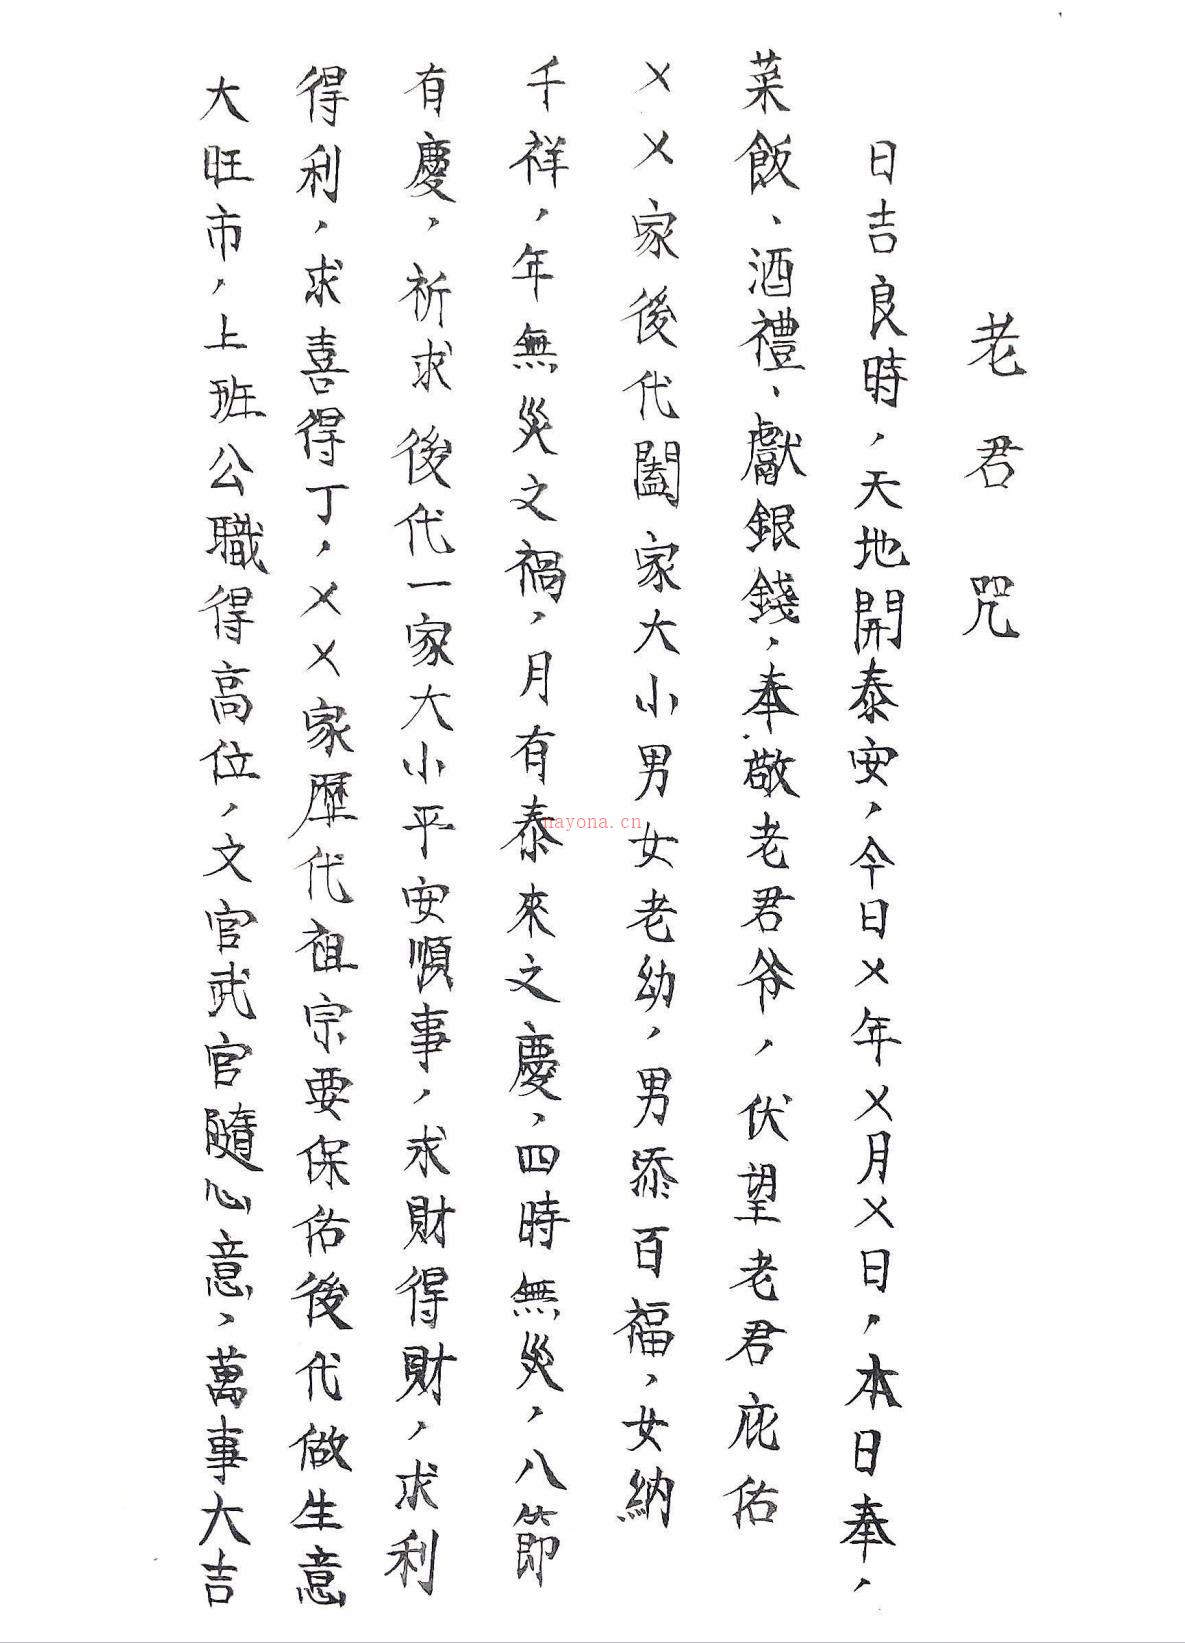 老君咒
日吉良時，天地開泰安，今日㐅年㐅月㐅日，本日奉，
菜飯、酒禮、獻銀錢，奉敬老君爷，伏望老君庇佑
㐅㐅家後代闔家大小男女老幼，男添百福，女納
千祥，年無災之禍，月有泰來之慶，四時無災，八節
有慶，祈求後代一家大小平安順事，求財得財，求利
得利，求喜得丁，㐅㐅家歷代祖宗要保佑後代做生意
大旺市，上班公職得高位，文官武官隨心意，萬事大吉
nayona.cn